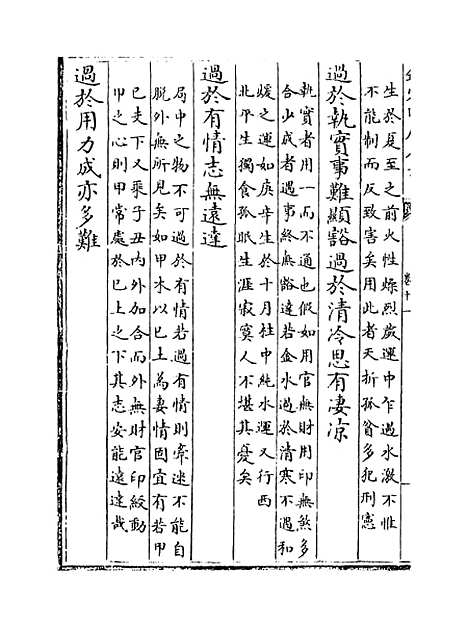 生於夏至之前火性燥烈歲運中乍遇水激不惟
不能制而反致害矣用此者夭折孤貧多犯刑憲
過於執實事難顯豁過於清冷思有凄凉
執實者用一而不通也假如用官無財用印無煞多
合少成者遇事終無豁達若金水過於清寒不遇和
煖之運如庚辛生於十月柱中純水運又行西
北平生獨食孤眠生涯寂寞人不堪其憂矣
過於有情志無遠達
局中之物不可過於有情若過有情則牽迷不能自
脱外無所見矣如甲木以己土為妻情固宜有若甲
己夫下又乘子丑内外加合而外無財官印綬動
甲之心則甲常處於己土之下其志安能遠達哉
過於用力成亦多難